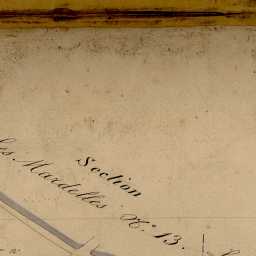 Section
les Mardelles N.° 13.